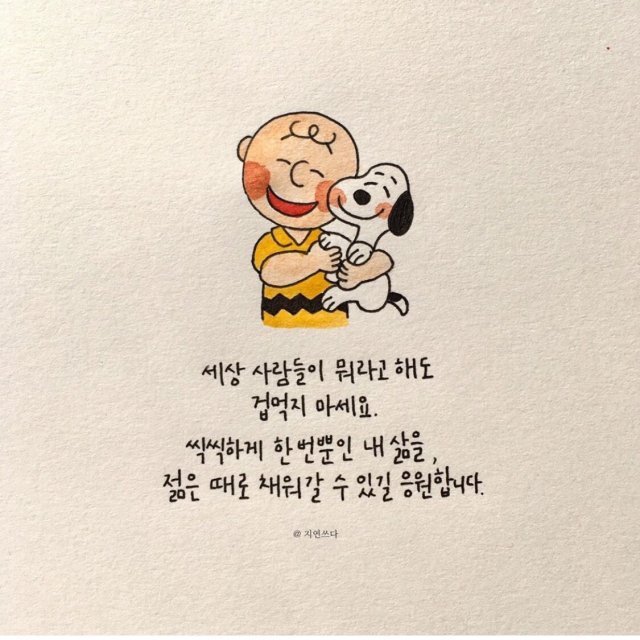 세상 사람들이 뭐라고 해도
겁먹지 마세요.
씩씩하게 한번뿐인 내 삶을,
젊은 때로 채워갈 수 있길 응원합니다.
@ 지연쓰다